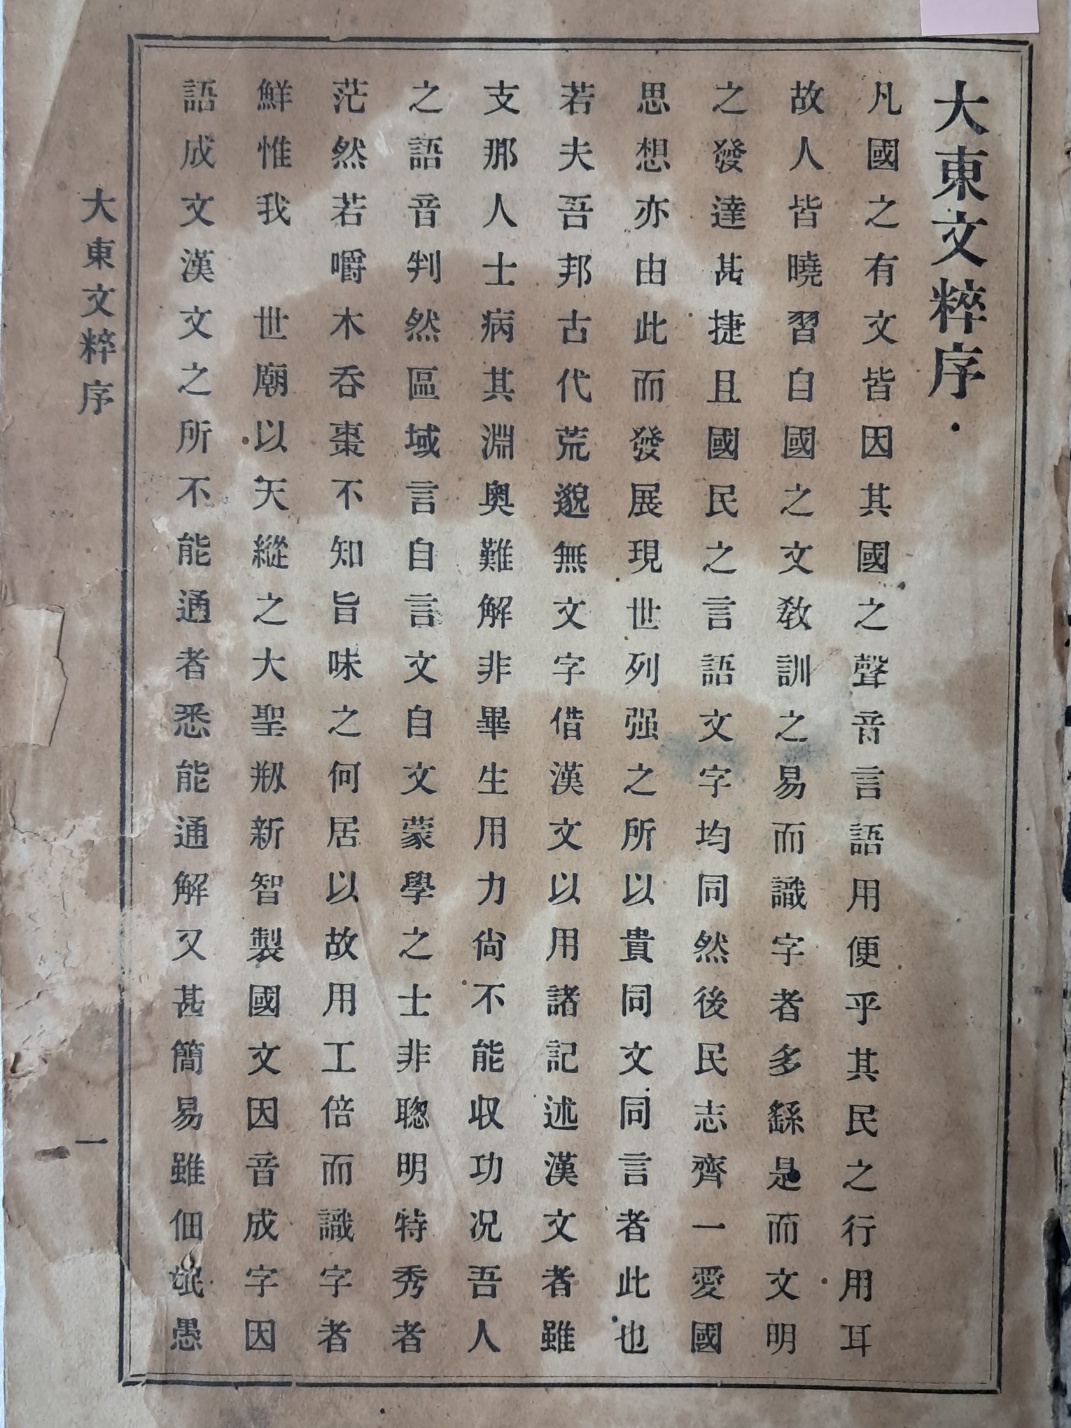 大東文粹序
凡國之有文皆因其國之聲音言語用便乎其民之行用耳
故人皆曉習自國之文敎訓之易而識字者多繇是而文明
之發達甚捷且國民之言語文字均同然後民志齊一愛國
思想亦由此而發展現世列强之所以貴同文同言者此也
若夫吾邦古代荒邈無文字借漢文以用諸記述漢文者雖
支那人士病其淵奧難解非畢生用力尙不能收功况吾人
之語音判然區域言自言文自文蒙學之士非聰明特秀者
茫然若嚼木呑棗不知旨味之何居以故用工倍而識字者
鮮惟我　世廟以天縱之大聖刱新智製國文因音成字因
語成文漢文之所不能通者悉能通解又甚簡易雖佃氓愚
大東文粹序
一